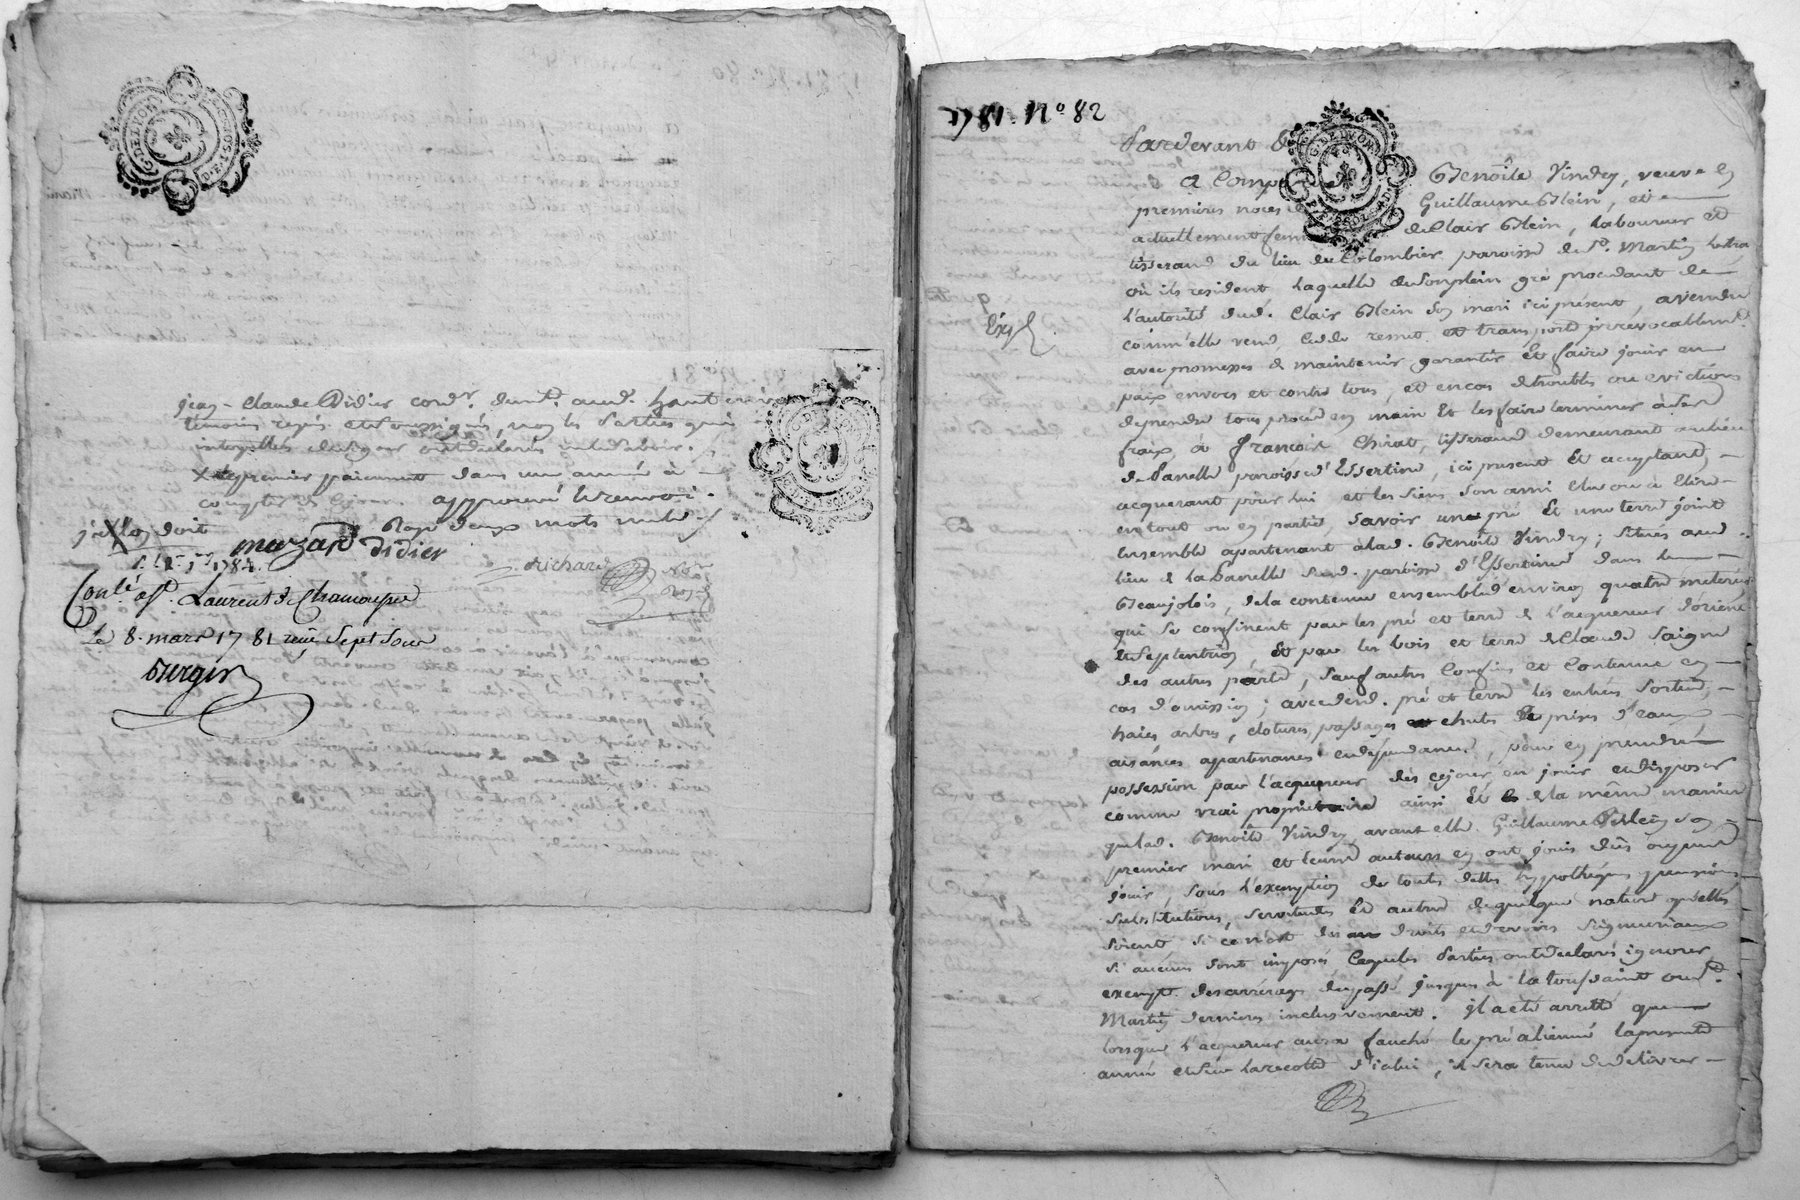 jean-Claude Didier cord.r dem.t aud. haute rivoire
témoins requis et soussignés, non les parties qui
interpellés de signer ont déclaré
X le premier paiement dans une année à
compter de ce jour approuvé le renvoi.
Rayé deux mots nuls
mazard didier
Richard
1784.
Conlé a St. Laurent de Chamousset
le 8. mars 1781 reçu sept sous
Bergir
1781. N.o 82
Pardevant
a Comparu Benoîte Vindry, veuve en
premieres noces de Guillaume Blein, et
actuellement femme de Clair Blein, laboureur et
tisserand du lieu du Colombier paroisse de St. Martin
où ils resident laquelle de son plein gré procedant de
l'autorité dud. Clair Blein son mari ici présent, a vendu
comm'elle vend, cede remet et transporte irrévocablem.t
avec promesses de maintenir garantir et faire jouir en
Exp
paix envers et contre tous, et en cas de troubles ou evictions
de prendre tous procès en main et les faire terminer à ses
fraix, à françois Chirat, tisserand demeurant au lieu
de Lanelle paroisse d'Essertine, ici présent et acceptant,
acquerant pour lui et les siens son ami élu ou à élire
en tout ou en partie, savoir un pré et une terre joint
ensemble apartenant à lad. Benoîte Vindry; situés aud.
lieu de la Lanelle sud. paroisse d'Essertine dans le
Beaujolois, de la contenue ensemble d'environ quatre meterées
qui se confinent par les pré et terre de l'acquereur d'orient
et septentrion, et par les bois et terre de Claude Saigne
des autres parts, sauf autres confins et contenue en
cas d'omission; avec desd. pré et terre les entrées sorties,
haies arbres, clotures, passages chutes et prises d'eaux
aisances apartenances et dependances, pour en prendre
possession par l'acquereur dès ce jour en jouir et disposer
comme vrai propriétaire ainsi et de la même maniere
que lad. Benoîte Vindry avant elle Guillaume Blein son
premier mari et leurs auteurs en ont jouis dûs ou pue
jouir, sous l'exemption de toutes dettes hypothéques pensions
substitutions, servitudes et autres de quelque nature qu'elles
soient si ce n'est des droits et devoirs seigneuriaux
si aucuns sont imposés lesquels parties ont déclarés ignorer
exempt des arrérages du passé jusques à la toussaint ou St.
Martin derniers inclusivement. Il a eté arretté que
lorsque l'acquereur aura fauché le pré aliené la presente
année et seu la recolte d'icelui, il sera tenu de delivrer